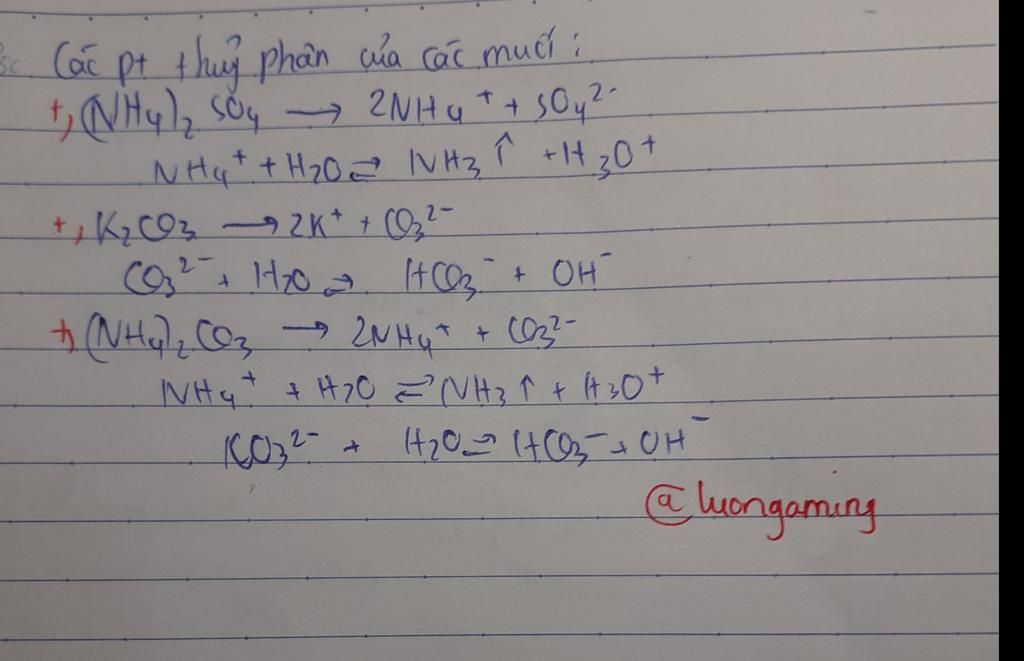 Các pt thuỷ phân của các muối :
+, (NH4)2 SO4 → 2NH4+ + SO4²⁻
NH4+ + H2O ⇌ NH3 ↑ + H3O+
+, K2CO3 → 2K+ + CO3²⁻
CO3²⁻ + H2O ⇌ HCO3⁻ + OH⁻
+, (NH4)2 CO3 → 2NH4+ + CO3²⁻
NH4+ + H2O ⇌ NH3 ↑ + H3O+
CO3²⁻ + H2O ⇌ HCO3⁻ + OH⁻
@luongaming